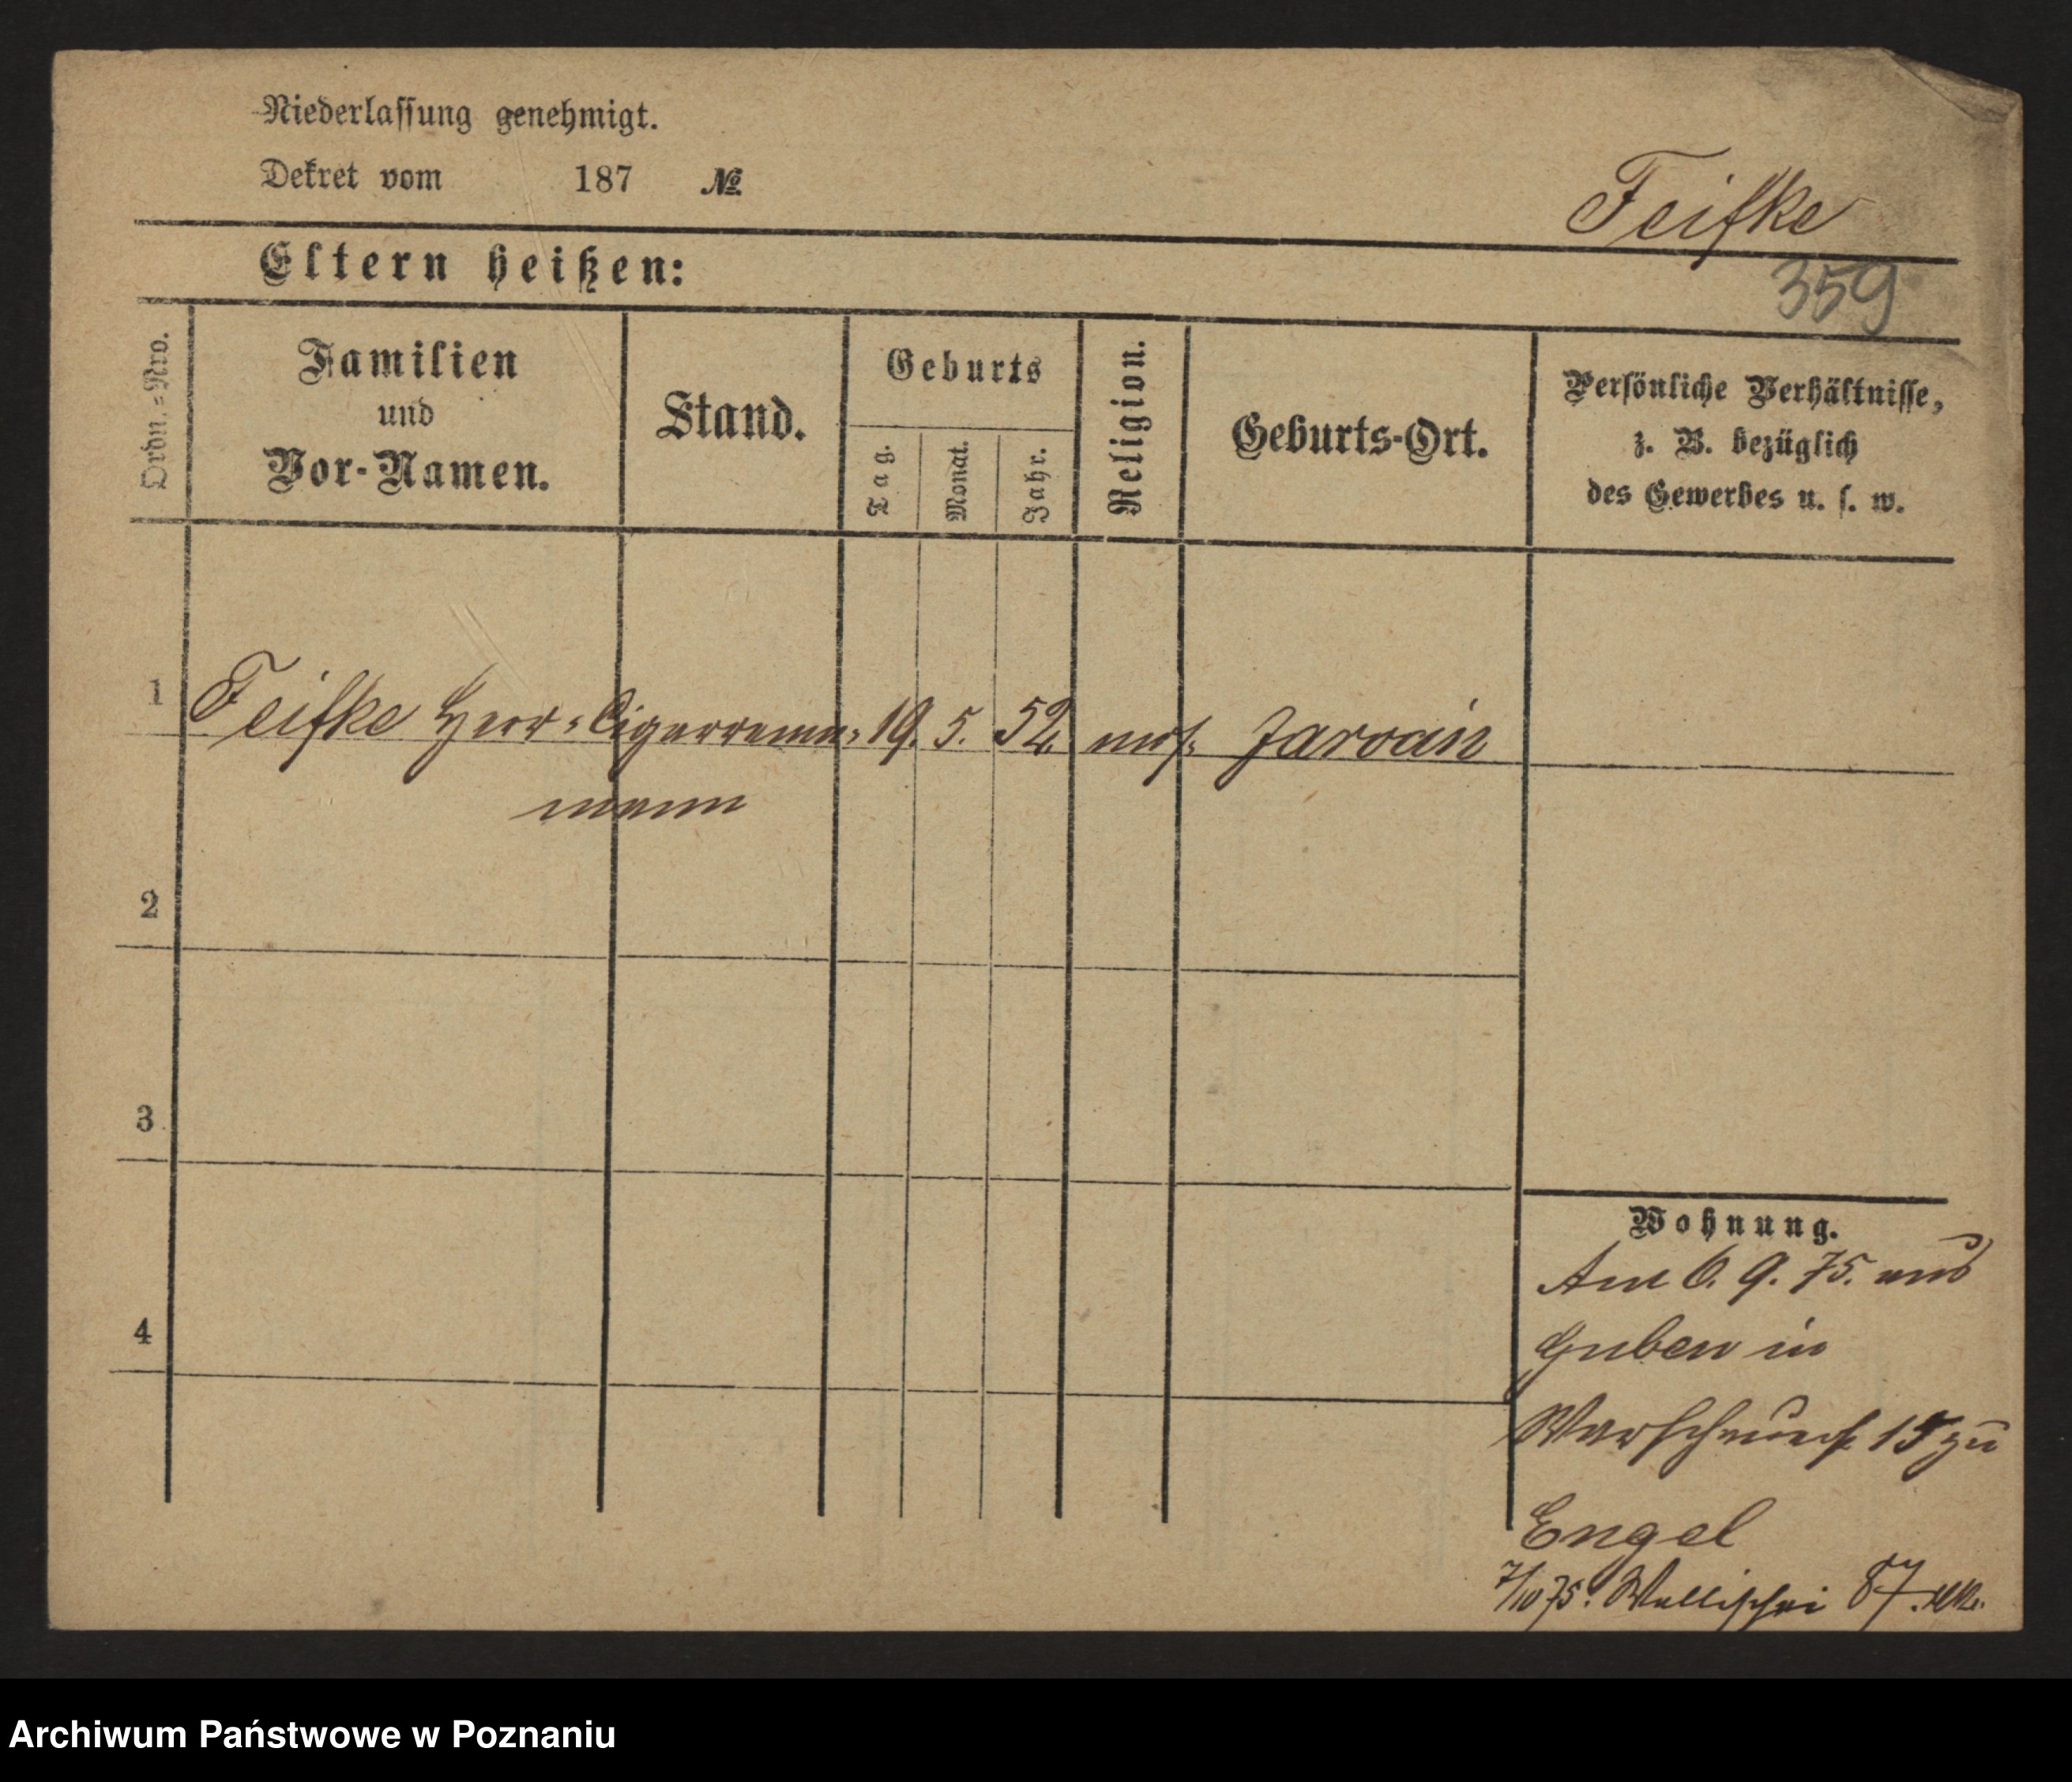 Niederlassung genehmigt.
Dekret vom 187 №
Feifke
Eltern heißen:
359
Ordn.=Nro.
Familien
und
Vor-Namen.
Stand.
Geburts
Tag.
Monat.
Jahr.
Religion.
Geburts-Ort.
Persönliche Verhältnisse,
z. B. bezüglich
des Gewerbes u. s. w.
1 Feifke Herr= Cigarrenm= 19. 5. 52. mos. Jarocin
mann
2
3
4
Wohnung.
Am 6. 9. 75. aus
Guben in
15 zu
Engel
7/10 75. Wallischei 87.
Archiwum Państwowe w Poznaniu